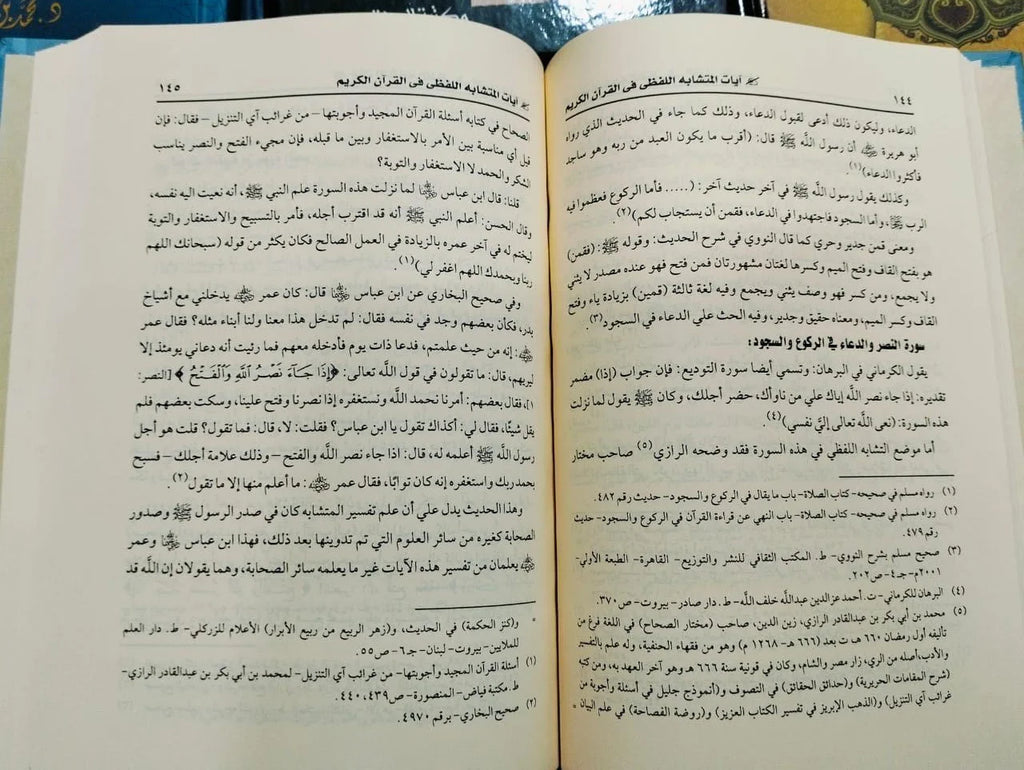 د. محمد بن
١٤٤
آيات المتشابه اللفظى فى القرآن الكريم
الدعاء، وليكون ذلك أدعى لقبول الدعاء، وذلك كما جاء في الحديث الذي رواه
أبو هريرة ﷺ أن رسول الله ﷺ قال: (أقرب ما يكون العبد من ربه وهو ساجد
فأكثروا الدعاء)(١).
وكذلك يقول رسول الله ﷺ في آخر حديث آخر: (..... فأما الركوع فعظموا فيه
الرب ﷺ، وأما السجود فاجتهدوا في الدعاء، فقمن أن يستجاب لكم)(٢).
ومعنى قمن جدير وحري كما قال النووي في شرح الحديث: وقوله ﷺ: (فقمن)
هو بفتح القاف وفتح الميم وكسرها لغتان مشهورتان فمن فتح فهو عنده مصدر لا يثني
ولا يجمع، ومن كسر فهو وصف يثني ويجمع وفيه لغة ثالثة (قمين) بزيادة ياء وفتح
القاف وكسر الميم، ومعناه حقيق وجدير، وفيه الحث علي الدعاء في السجود(٣).
سورة النصر والدعاء في الركوع والسجود:
يقول الكرماني في البرهان: وتسمي أيضا سورة التوديع: فإن جواب (إذا) مضمر
تقديره: إذا جاء نصر الله إياك علي من ناوأك، حضر أجلك، وكان ﷺ يقول لما نزلت
هذه السورة: (نعى الله تعالى إليَّ نفسي)(٤).
أما موضع التشابه اللفظي في هذه السورة فقد وضحه الرازي(٥) صاحب مختار
(١) رواه مسلم في صحيحه- كتاب الصلاة- باب ما يقال في الركوع والسجود- حديث رقم ٤٨٢.
(٢) رواه مسلم في صحيحه- كتاب الصلاة- باب النهي عن قراءة القرآن في الركوع والسجود- حديث
رقم ٤٧٩.
(٣) صحيح مسلم بشرح النووي- ط. المكتب الثقافي للنشر والتوزيع- القاهرة- الطبعة الأولي-
٢٠٠١م- جـ٤- ص٢٠٢.
(٤) البرهان للكرماني- ت. أحمد عزالدين عبدالله خلف الله- ط. دار صادر- بيروت- ص٣٧٠.
(٥) محمد بن أبي بكر بن عبدالقادر الرازي، زين الدين، صاحب (مختار الصحاح) في اللغة فرغ من
تأليفه أول رمضان ٦٦٠ هـ ت بعد (٦٦٦ هـ- ١٢٦٨ م) وهو من فقهاء الحنفية، وله علم بالتفسير
والأدب، أصله من الري، زار مصر والشام، وكان في قونية سنة ٦٦٦ هـ وهو آخر العهد به، ومن كتبه
(شرح المقامات الحريرية) و(حدائق الحقائق) في التصوف و(أنموذج جليل في أسئلة وأجوبة من
غرائب آي التنزيل) و(الذهب الإبريز في تفسير الكتاب العزيز) و(روضة الفصاحة) في علم البيان =
آيات المتشابه اللفظى فى القرآن الكريم
١٤٥
الصحاح في كتابه أسئلة القرآن المجيد وأجوبتها- من غرائب آي التنزيل- فقال: فإن
قيل أي مناسبة بين الأمر بالاستغفار وبين ما قبله، فإن مجيء الفتح والنصر يناسب
الشكر والحمد لا الاستغفار والتوبة؟
قلنا: قال ابن عباس لما نزلت هذه السورة علم النبي ﷺ، أنه نعيت اليه نفسه،
وقال الحسن: أعلم النبي ﷺ أنه قد اقترب أجله، فأمر بالتسبيح والاستغفار والتوبة
ليختم له في آخر عمره بالزيادة في العمل الصالح فكان يكثر من قوله (سبحانك اللهم
ربنا وبحمدك اللهم اغفر لي)(١).
وفي صحيح البخاري عن ابن عباس قال: كان عمر يدخلني مع أشياخ
بدر، فكأن بعضهم وجد في نفسه فقال: لم تدخل هذا معنا ولنا أبناء مثله؟ فقال عمر
: إنه من حيث علمتم، فدعا ذات يوم فأدخله معهم فما رئيت أنه دعاني يومئذ إلا
ليريهم، قال: ما تقولون في قول الله تعالى: ﴿إِذَا جَآءَ نَصْرُ ٱللَّهِ وَٱلْفَتْحُ﴾ [النصر:
١]، فقال بعضهم: أمرنا نحمد الله ونستغفره إذا نصرنا وفتح علينا، وسكت بعضهم فلم
يقل شيئًا، فقال لي: أكذاك تقول يا ابن عباس؟ فقلت: لا، قال: فما تقول؟ قلت هو أجل
رسول الله ﷺ أعلمه له، قال: اذا جاء نصر الله والفتح- وذلك علامة أجلك- فسبح
بحمد ربك واستغفره إنه كان توابًا، فقال عمر : ما أعلم منها إلا ما تقول(٢).
وهذا الحديث يدل علي أن علم تفسير المتشابه كان في صدر الرسول ﷺ وصدور
الصحابة كغيره من سائر العلوم التي تم تدوينها بعد ذلك، فهذا ابن عباس وعمر
يعلمان من تفسير هذه الآيات غير ما يعلمه سائر الصحابة، وهما يقولان إن الله قد
= و(كنز الحكمة) في الحديث، و(زهر الربيع من ربيع الأبرار) الأعلام للزركلي- ط. دار العلم
للملايين- بيروت- لبنان- جـ٦- ص٥٥.
(١) أسئلة القرآن المجيد وأجوبتها- من غرائب آي التنزيل- لمحمد بن أبي بكر بن عبدالقادر الرازي-
ط. مكتبة فياض- المنصورة- ص٤٣٩، ٤٤٠.
(٢) صحيح البخاري- برقم ٤٩٧٠.